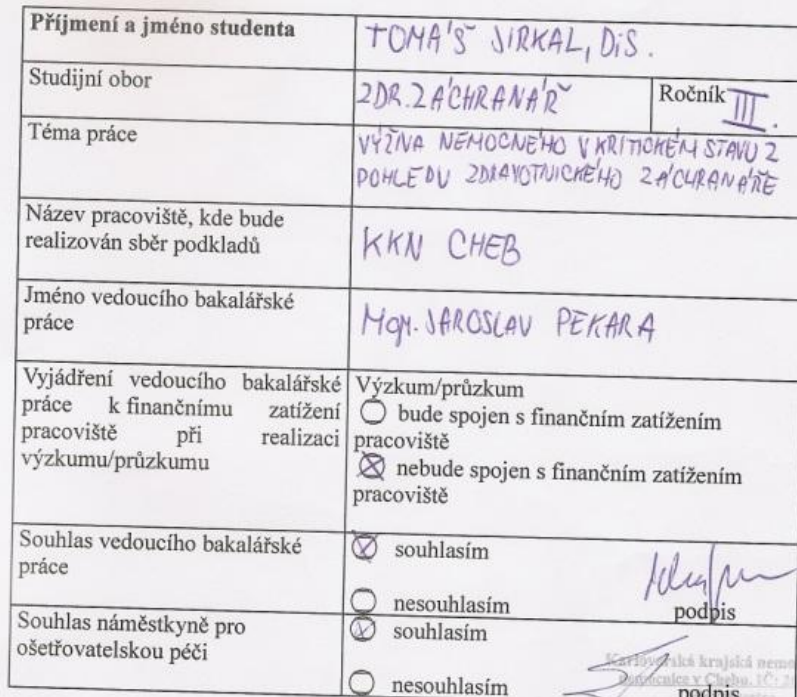 Příjmení a jméno studenta
TOMÁŠ JIRKAL, DiS.
Studijní obor
ZDR. ZÁCHRANÁŘ
Ročník III.
Téma práce
VÝŽIVA NEMOCNÉHO V KRITICKÉM STAVU Z
POHLEDU ZDRAVOTNICKÉHO ZÁCHRANÁŘE
Název pracoviště, kde bude
realizován sběr podkladů
KKN CHEB
Jméno vedoucího bakalářské
práce
Mgr. JAROSLAV PEKARA
Vyjádření vedoucího bakalářské
práce k finančnímu zatížení
pracoviště při realizaci
výzkumu/průzkumu
Výzkum/průzkum
bude spojen s finančním zatížením
pracoviště
nebude spojen s finančním zatížením
pracoviště
Souhlas vedoucího bakalářské
práce
souhlasím
nesouhlasím
podpis
Souhlas náměstkyně pro
ošetřovatelskou péči
souhlasím
Karlovarská krajská
nemocnice v Chebu, IČ:
nesouhlasím
podpis